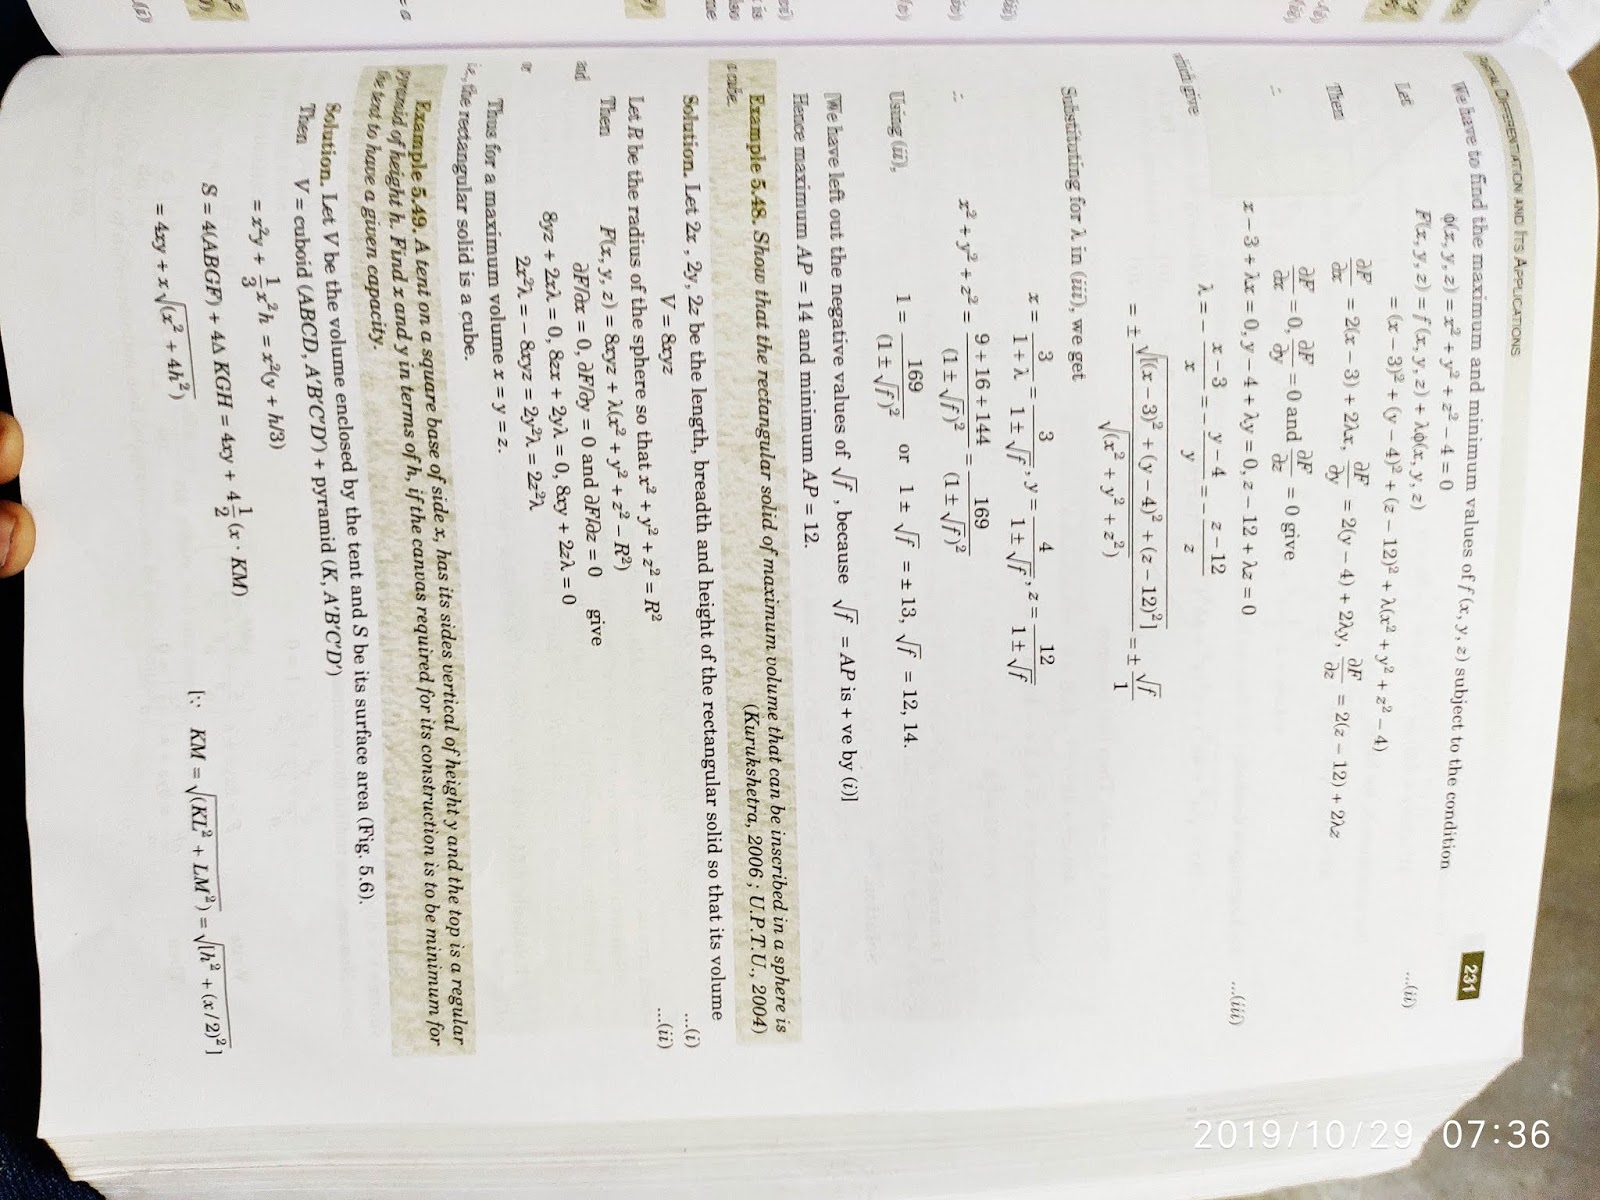 DIFFERENTIATION AND ITS APPLICATIONS
231
We have to find the maximum and minimum values of f(x, y, z) subject to the condition
ϕ(x, y, z) = x² + y² + z² – 4 = 0 ...(ii)
Let F(x, y, z) = f(x, y, z) + λϕ(x, y, z)
= (x – 3)² + (y – 4)² + (z – 12)² + λ(x² + y² + z² – 4)
Then ∂F/∂x = 2(x – 3) + 2λx, ∂F/∂y = 2(y – 4) + 2λy, ∂F/∂z = 2(z – 12) + 2λz
∴ ∂F/∂x = 0, ∂F/∂y = 0 and ∂F/∂z = 0 give
x – 3 + λx = 0, y – 4 + λy = 0, z – 12 + λz = 0 ...(iii)
which give λ = – (x – 3)/x = – (y – 4)/y = – (z – 12)/z
= ± √[(x – 3)² + (y – 4)² + (z – 12)²]/√(x² + y² + z²) = ± √f/1
Substituting for λ in (iii), we get
x = 3/(1 + λ) = 3/(1 ± √f), y = 4/(1 ± √f), z = 12/(1 ± √f)
∴ x² + y² + z² = (9 + 16 + 144)/(1 ± √f)² = 169/(1 ± √f)²
Using (ii), 1 = 169/(1 ± √f)² or 1 ± √f = ± 13, √f = 12, 14.
[We have left out the negative values of √f, because √f = AP is + ve by (i)]
Hence maximum AP = 14 and minimum AP = 12.
Example 5.48. Show that the rectangular solid of maximum volume that can be inscribed in a sphere is
a cube. (Kurukshetra, 2006 ; U.P.T.U., 2004)
Solution. Let 2x, 2y, 2z be the length, breadth and height of the rectangular solid so that its volume
V = 8xyz ...(i)
Let R be the radius of the sphere so that x² + y² + z² = R² ...(ii)
Then F(x, y, z) = 8xyz + λ(x² + y² + z² – R²)
and ∂F/∂x = 0, ∂F/∂y = 0 and ∂F/∂z = 0 give
8yz + 2xλ = 0, 8zx + 2yλ = 0, 8xy + 2zλ = 0
or 2x²λ = – 8xyz = 2y²λ = 2z²λ
Thus for a maximum volume x = y = z.
i.e., the rectangular solid is a cube.
Example 5.49. A tent on a square base of side x, has its sides vertical of height y and the top is a regular
pyramid of height h. Find x and y in terms of h, if the canvas required for its construction is to be minimum for
the tent to have a given capacity.
Solution. Let V be the volume enclosed by the tent and S be its surface area (Fig. 5.6).
Then V = cuboid (ABCD, A′B′C′D′) + pyramid (K, A′B′C′D′)
= x²y + 1/3 x²h = x²(y + h/3)
S = 4(ABGF) + 4Δ KGH = 4xy + 4 1/2 (x · KM)
[∵ KM = √(KL² + LM²) = √[h² + (x/2)²]
= 4xy + x √(x² + 4h²)
2019/10/29 07:36